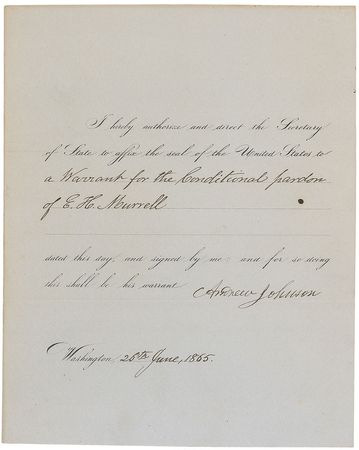 I hereby authorize and direct the Secretary
of State to affix the seal of the United States to
a Warrant for the Conditional pardon
of E. H. Murrell
dated this day, and signed by me and for so doing
this shall be his warrant
Andrew Johnson
Washington, 26th June, 1865.